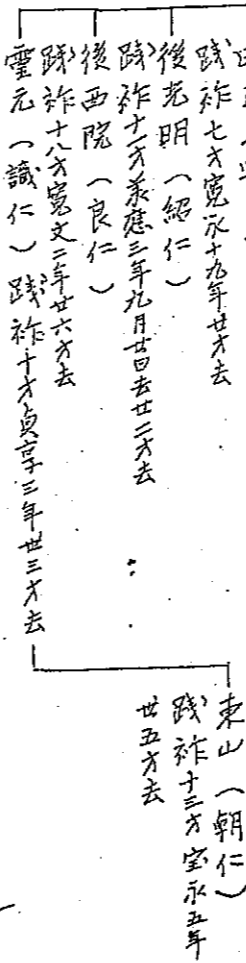 践祚七才寛永十九年廿才去
後光明(紹仁)
践祚十一才承應三年九月廿日去廿二才去
後西院(良仁)
践祚十八才寛文二年廿六才去
霊元(識仁)践祚十才貞享三年卅三才去
東山(朝仁)
践祚十三才宝永五年
卅五才去